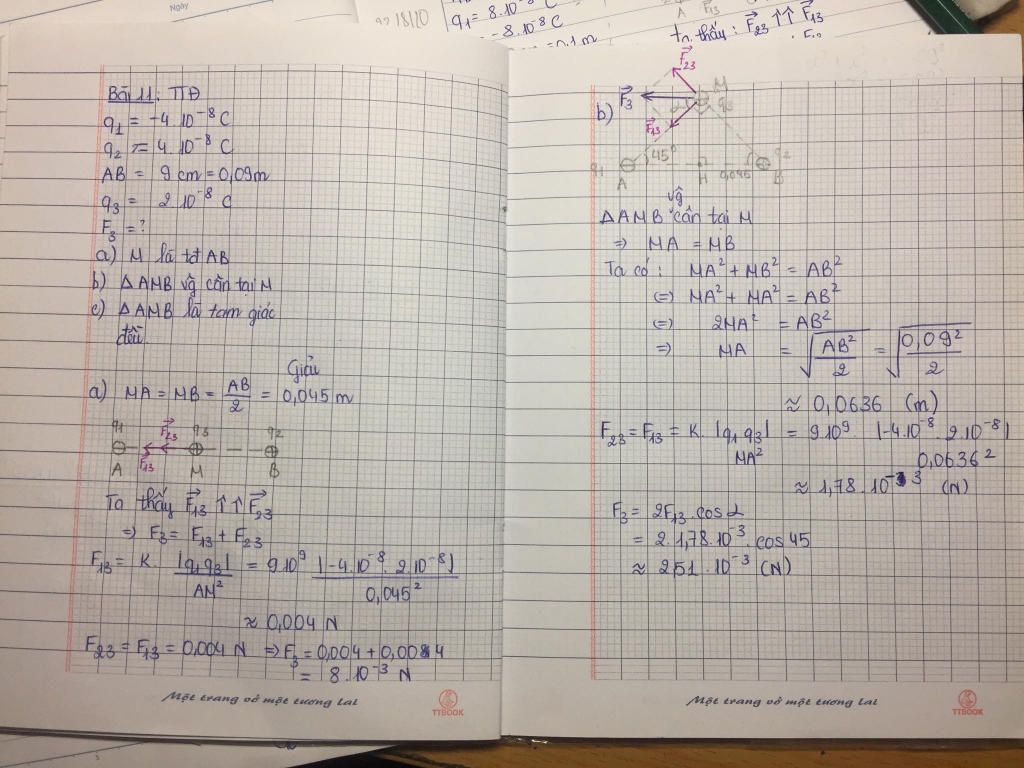 Ngày
92 18/10
q₁ = 8.10⁻⁸ C
- 8.10⁻⁸ C
0,1 m
A F₁₃
ta thấy: F⃗₂₃ ↑↑ F⃗₁₃
Bài 11: TTĐ
q₁ = -4.10⁻⁸ C
q₂ = 4.10⁻⁸ C
AB = 9 cm = 0,09m
q₃ = 2 10⁻⁸ C
F₃ = ?
a) M là tđ AB
b) ΔAMB vg cân tại M
c) ΔAMB là tam giác
đều
Giải
a) MA = MB = AB/2 = 0,045 m
q₁ F⃗₂₃ q₃ q₂
A F⃗₁₃ M B
Ta thấy F⃗₁₃ ↑↑ F⃗₂₃
⇒ F₃ = F₁₃ + F₂₃
F₁₃ = K. |q₁q₃|/AM² = 9.10⁹ |-4.10⁻⁸. 2.10⁻⁸|/0,045²
≈ 0,004 N
F₂₃ = F₁₃ = 0,004 N ⇒ F₃ = 0,004 + 0,004
= 8.10⁻³ N
Một trang vở một tương lai
TTBOOK
F⃗₂₃
b) F⃗₃ M
F⃗₁₃ α q₃
q₁ 45° q₂
A H 0,045 B
vg
ΔAMB cân tại M
⇒ MA = MB
Ta có: MA² + MB² = AB²
(=) MA² + MA² = AB²
(=) 2MA² = AB²
⇒ MA = √(AB²/2) = √(0,09²/2)
≈ 0,0636 (m)
F₂₃ = F₁₃ = K. |q₁q₃|/MA² = 9.10⁹ |-4.10⁻⁸. 2.10⁻⁸|/0,0636²
≈ 1,78.10⁻³ (N)
F₃ = 2F₁₃.cos α
= 2.1,78.10⁻³.cos 45
≈ 2,51.10⁻³ (N)
Một trang vở một tương lai
TTBOOK